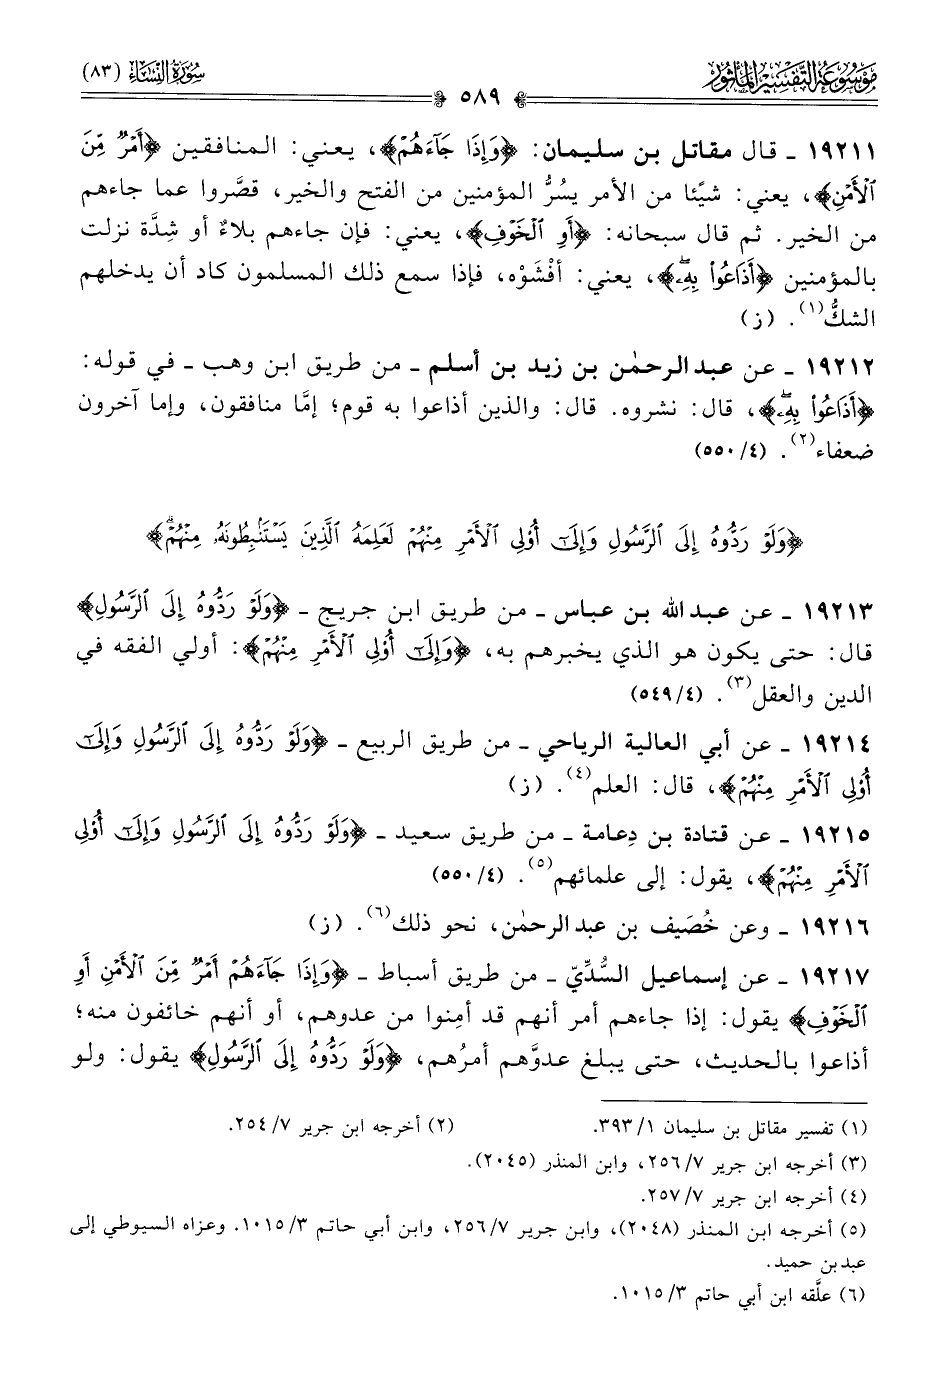 موسوعة التفسير المأثور
سورة النساء (٨٣)
٥٨٩
١٩٢١١ ـ قال مقاتل بن سليمان: ﴿وَإِذَا جَآءَهُمْ﴾، يعني: المنافقين ﴿أَمْرٌ مِّنَ
ٱلْأَمْنِ﴾، يعني: شيئًا من الأمر يسُرُّ المؤمنين من الفتح والخير، قصَّروا عما جاءهم
من الخير. ثم قال سبحانه: ﴿أَوِ ٱلْخَوْفِ﴾، يعني: فإن جاءهم بلاءٌ أو شِدَّة نزلت
بالمؤمنين ﴿أَذَاعُوا۟ بِهِۦۖ﴾، يعني: أفْشَوْه، فإذا سمع ذلك المسلمون كاد أن يدخلهم
الشكُّ(١). (ز)
١٩٢١٢ ـ عن عبدالرحمٰن بن زيد بن أسلم ـ من طريق ابن وهب ـ في قوله:
﴿أَذَاعُوا۟ بِهِۦۖ﴾، قال: نشروه. قال: والذين أذاعوا به قوم؛ إمَّا منافقون، وإما آخرون
ضعفاء(٢). (٤/ ٥٥٠)
﴿وَلَوْ رَدُّوهُ إِلَى ٱلرَّسُولِ وَإِلَىٰٓ أُو۟لِى ٱلْأَمْرِ مِنْهُمْ لَعَلِمَهُ ٱلَّذِينَ يَسْتَنۢبِطُونَهُۥ مِنْهُمْۗ﴾
١٩٢١٣ ـ عن عبدالله بن عباس ـ من طريق ابن جريج ـ ﴿وَلَوْ رَدُّوهُ إِلَى ٱلرَّسُولِ﴾
قال: حتى يكون هو الذي يخبرهم به، ﴿وَإِلَىٰٓ أُو۟لِى ٱلْأَمْرِ مِنْهُمْ﴾: أولي الفقه في
الدين والعقل(٣). (٤/ ٥٤٩)
١٩٢١٤ ـ عن أبي العالية الرياحي ـ من طريق الربيع ـ ﴿وَلَوْ رَدُّوهُ إِلَى ٱلرَّسُولِ وَإِلَىٰٓ
أُو۟لِى ٱلْأَمْرِ مِنْهُمْ﴾، قال: العلم(٤). (ز)
١٩٢١٥ ـ عن قتادة بن دِعامة ـ من طريق سعيد ـ ﴿وَلَوْ رَدُّوهُ إِلَى ٱلرَّسُولِ وَإِلَىٰٓ أُو۟لِى
ٱلْأَمْرِ مِنْهُمْ﴾، يقول: إلى علمائهم(٥). (٤/ ٥٥٠)
١٩٢١٦ ـ وعن خُصَيف بن عبدالرحمٰن، نحو ذلك(٦). (ز)
١٩٢١٧ ـ عن إسماعيل السُّدِّيّ ـ من طريق أسباط ـ ﴿وَإِذَا جَآءَهُمْ أَمْرٌ مِّنَ ٱلْأَمْنِ أَوِ
ٱلْخَوْفِ﴾ يقول: إذا جاءهم أمر أنهم قد أمِنوا من عدوهم، أو أنهم خائفون منه؛
أذاعوا بالحديث، حتى يبلغ عدوَّهم أمرُهم، ﴿وَلَوْ رَدُّوهُ إِلَى ٱلرَّسُولِ﴾ يقول: ولو
(١) تفسير مقاتل بن سليمان ١/ ٣٩٣. (٢) أخرجه ابن جرير ٧/ ٢٥٤.
(٣) أخرجه ابن جرير ٧/ ٢٥٦، وابن المنذر (٢٠٤٥).
(٤) أخرجه ابن جرير ٧/ ٢٥٧.
(٥) أخرجه ابن المنذر (٢٠٤٨)، وابن جرير ٧/ ٢٥٦، وابن أبي حاتم ٣/ ١٠١٥. وعزاه السيوطي إلى
عبد بن حميد.
(٦) علَّقه ابن أبي حاتم ٣/ ١٠١٥.